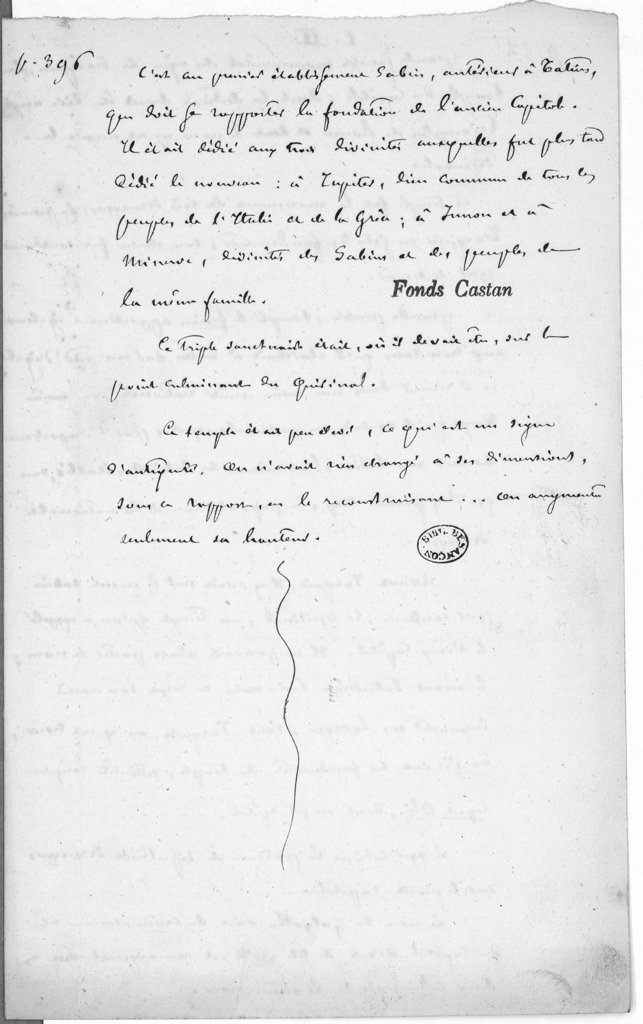 p. 396
C'est au premier établissement Sabin, antérieur à Tatius,
que doit se rapporter la fondation de l'ancien Capitole.
Il était dédié aux trois divinités auxquelles fut plus tard
dédié le nouveau : à Jupiter, dieu commun de tous les
peuples de l'Italie et de la Grèce ; à Junon et à
Minerve, divinités des Sabins et des peuples de
la même famille.
Fonds Castan
Ce triple sanctuaire était, où il devait être, sur le
point culminant du Quirinal.
Ce temple était peu élevé, ce qui est un signe
d'antiquité. On n'avait rien changé à ses dimensions,
sous ce rapport, en le reconstruisant ... On augmenta
seulement sa hauteur.
BIBL. BESANÇON